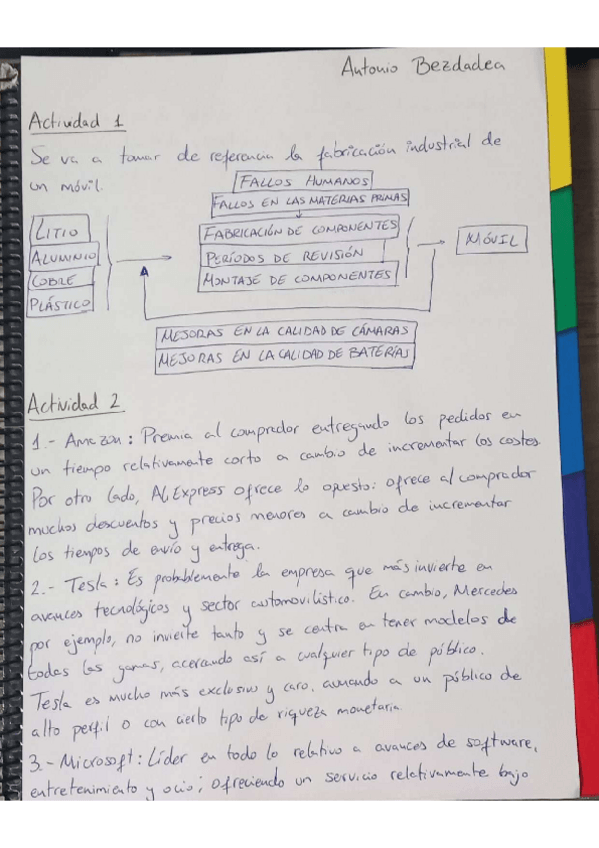 Antonio Bezdadea
Actividad 1
Se va a tomar de referencia la fabricación industrial de
un móvil.
FALLOS HUMANOS
FALLOS EN LAS MATERIAS PRIMAS
LITIO
ALUMINIO
COBRE
PLÁSTICO
FABRICACIÓN DE COMPONENTES
PERÍODOS DE REVISIÓN
MONTAJE DE COMPONENTES
MÓVIL
MEJORAS EN LA CALIDAD DE CÁMARAS
MEJORAS EN LA CALIDAD DE BATERÍAS
Actividad 2
1.- Amazon: Premia al comprador entregando los pedidos en
un tiempo relativamente corto a cambio de incrementar los costes.
Por otro lado, AliExpress ofrece lo opuesto: ofrece al comprador
muchos descuentos y precios menores a cambio de incrementar
los tiempos de envío y entrega.
2.- Tesla: Es probablemente la empresa que más invierte en
avances tecnológicos y sector automovilístico. En cambio, Mercedes
por ejemplo, no invierte tanto y se centra en tener modelos de
todas las gamas, acercando así a cualquier tipo de público.
Tesla es mucho más exclusivo y caro, a un público de
alto perfil o con cierto tipo de riqueza monetaria.
3.- Microsoft: Líder en todo lo relativo a avances de software,
entretenimiento y ocio; ofreciendo un servicio relativamente bajo